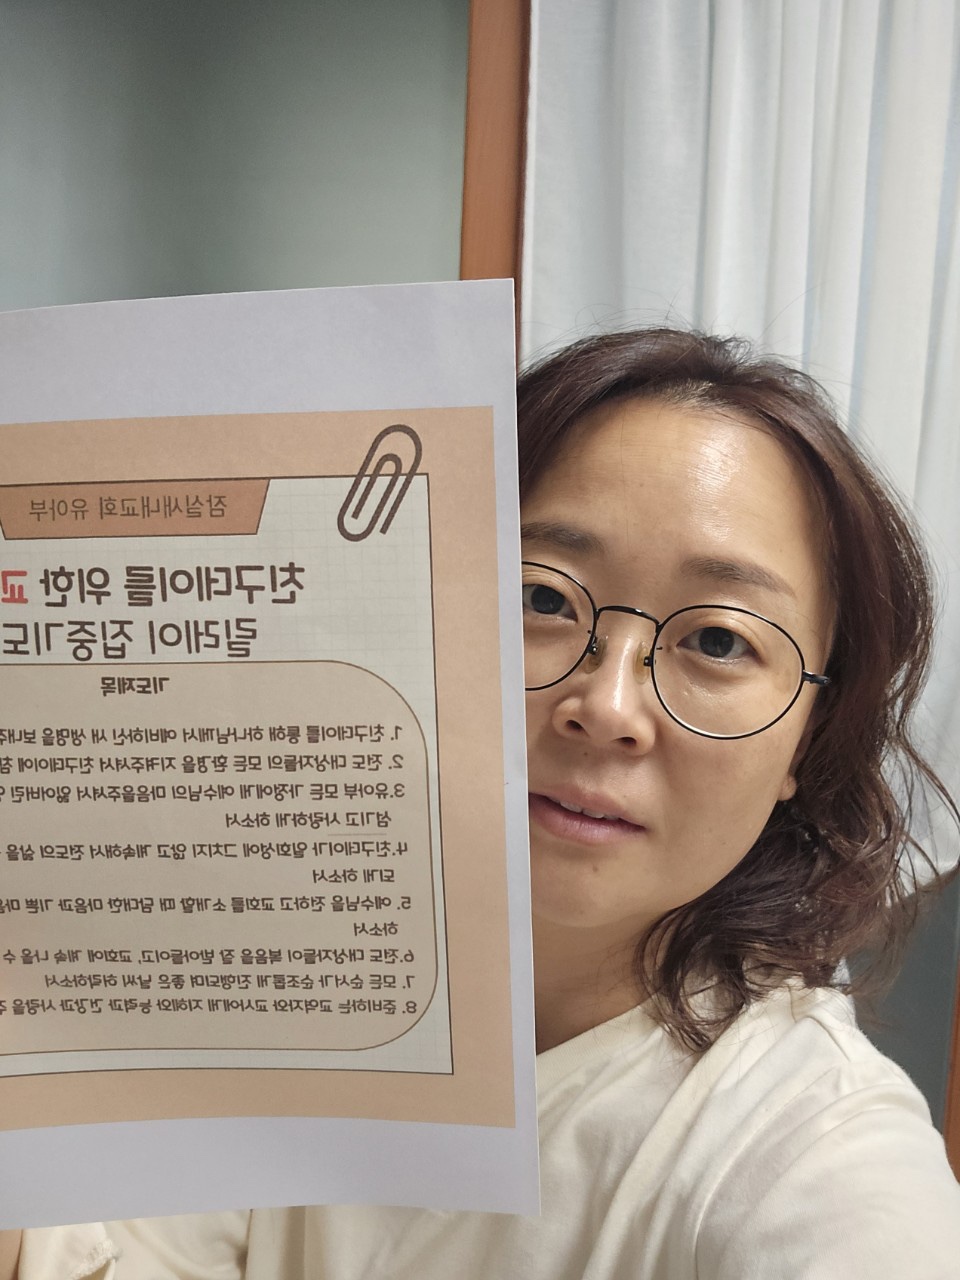 잠실새내교회 유아부
친구데이를 위한 교
릴레이 집중기도
기도제목
1. 친구데이를 통해 하나님께서 예비하신 새 생명을 보내주
2. 전도 대상자들의 모든 환경을 지켜주셔서 친구데이에 참
3.유아부 모든 가정에게 예수님의 마음을주셔서 잃어버린
섬기고 사랑하게 하소서
4.친구데이가 일회성에 그치지 않고 계속해서 전도의 삶을
되게 하소서
5. 예수님을 전하고 교회를 소개할 때 담대한 마음과 기쁜 마음
하소서
6.전도 대상자들이 복음을 잘 받아들이고, 교회에 계속 나올 수
7. 모든 순서가 순조롭게 진행되며 좋은 날씨 허락하소서
8. 준비하는 교역자와 교사에게 지혜와 능력과 건강과 사랑을 주